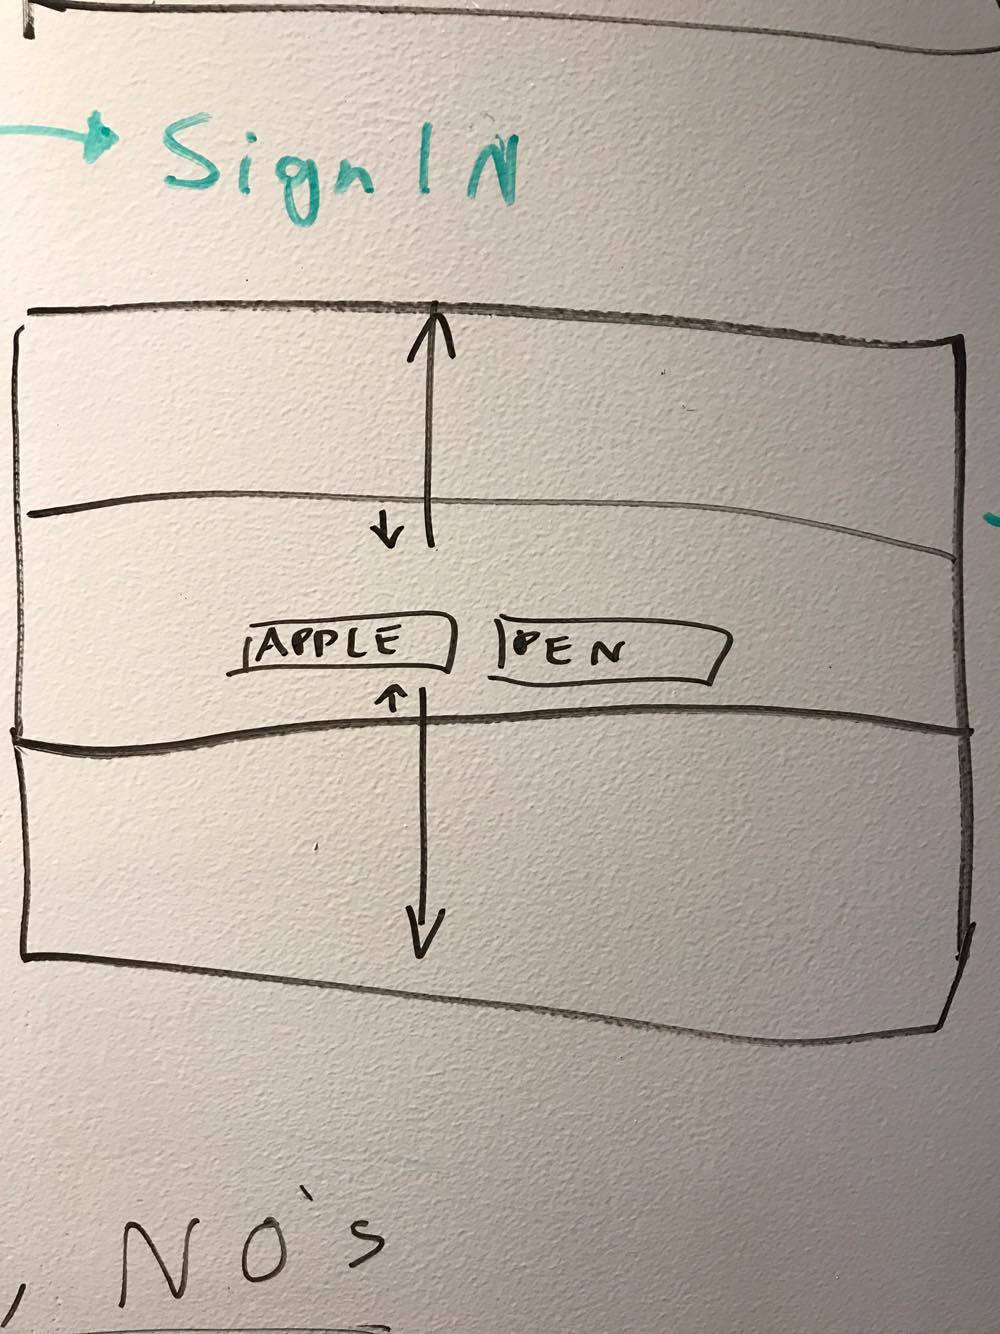 Sign IN
APPLE PEN
, NO's